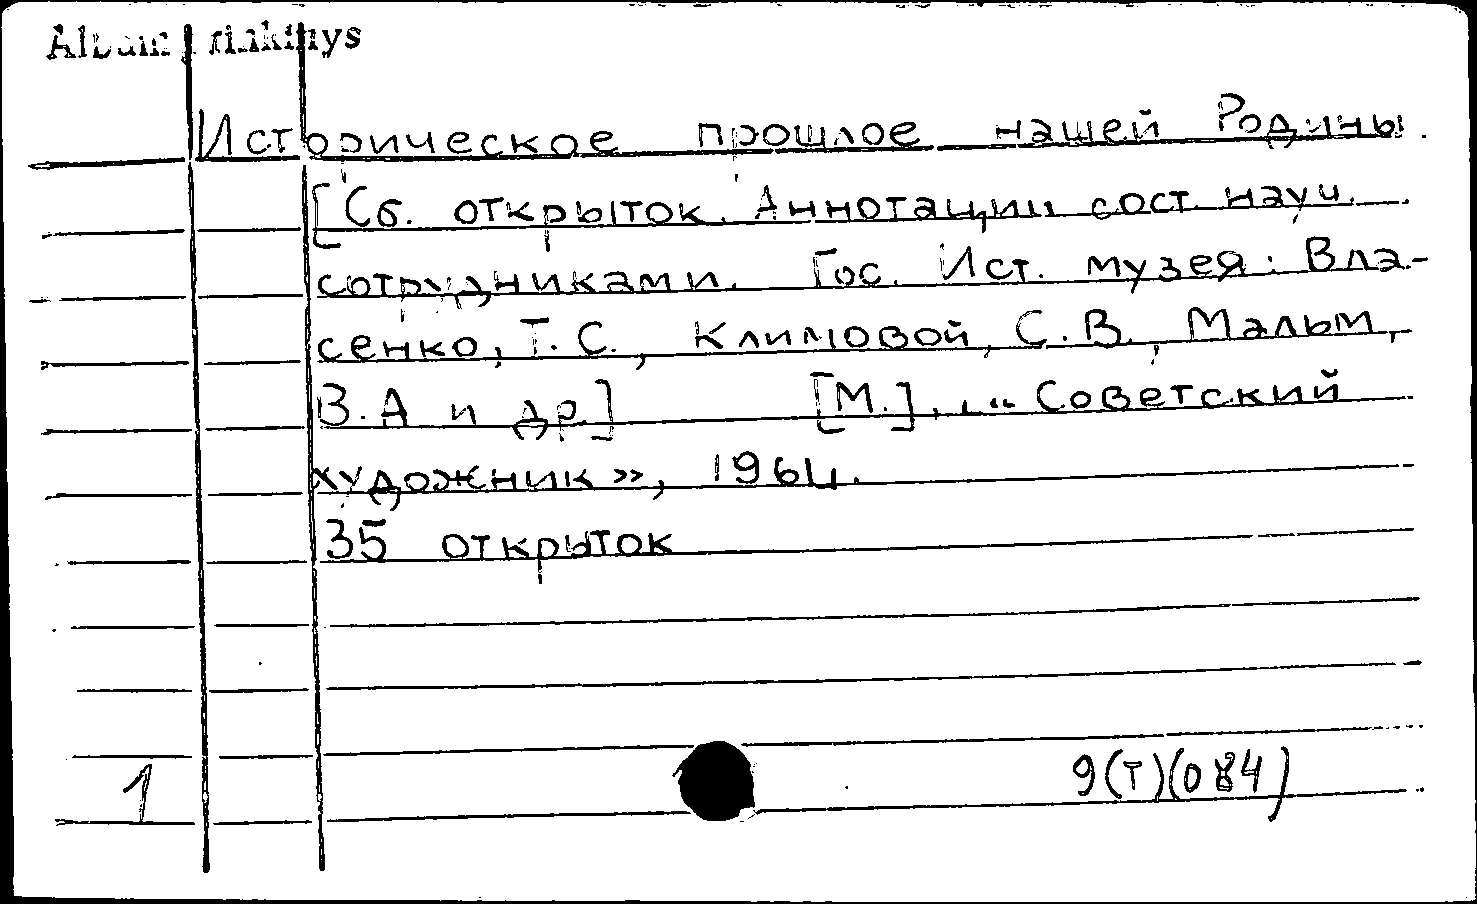 Albumų rinkinys
Историческое прошлое нашей Родины.
[Сб. открыток. Аннотации сост. науч.
сотрудниками. Гос. Ист. музея: Вла-
сенко, Т. С., Климовой, С. В., Мальм,
В. А и др.] [М.], „Советский
художник», 1964.
35 открыток
1 9(Т)(084)